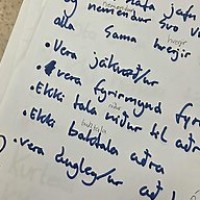 og nemendur svo v
alla sama hverjir
• Vera jákvæð/ur
• vera fyrirmynd fyr
• Ekki tala niður til aðr
• Ekki baktala aðra
• vera dugleg/ur að